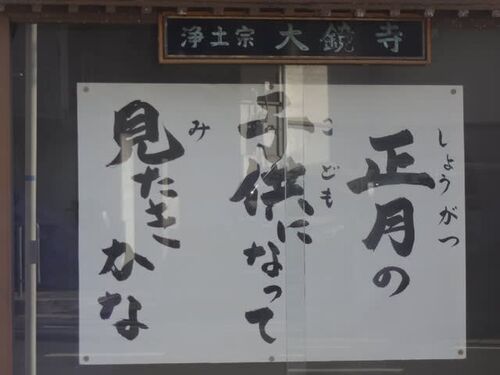 浄土宗 大鏡寺
しょうがつ
正月の
こども
子供になって
み
見たきかな